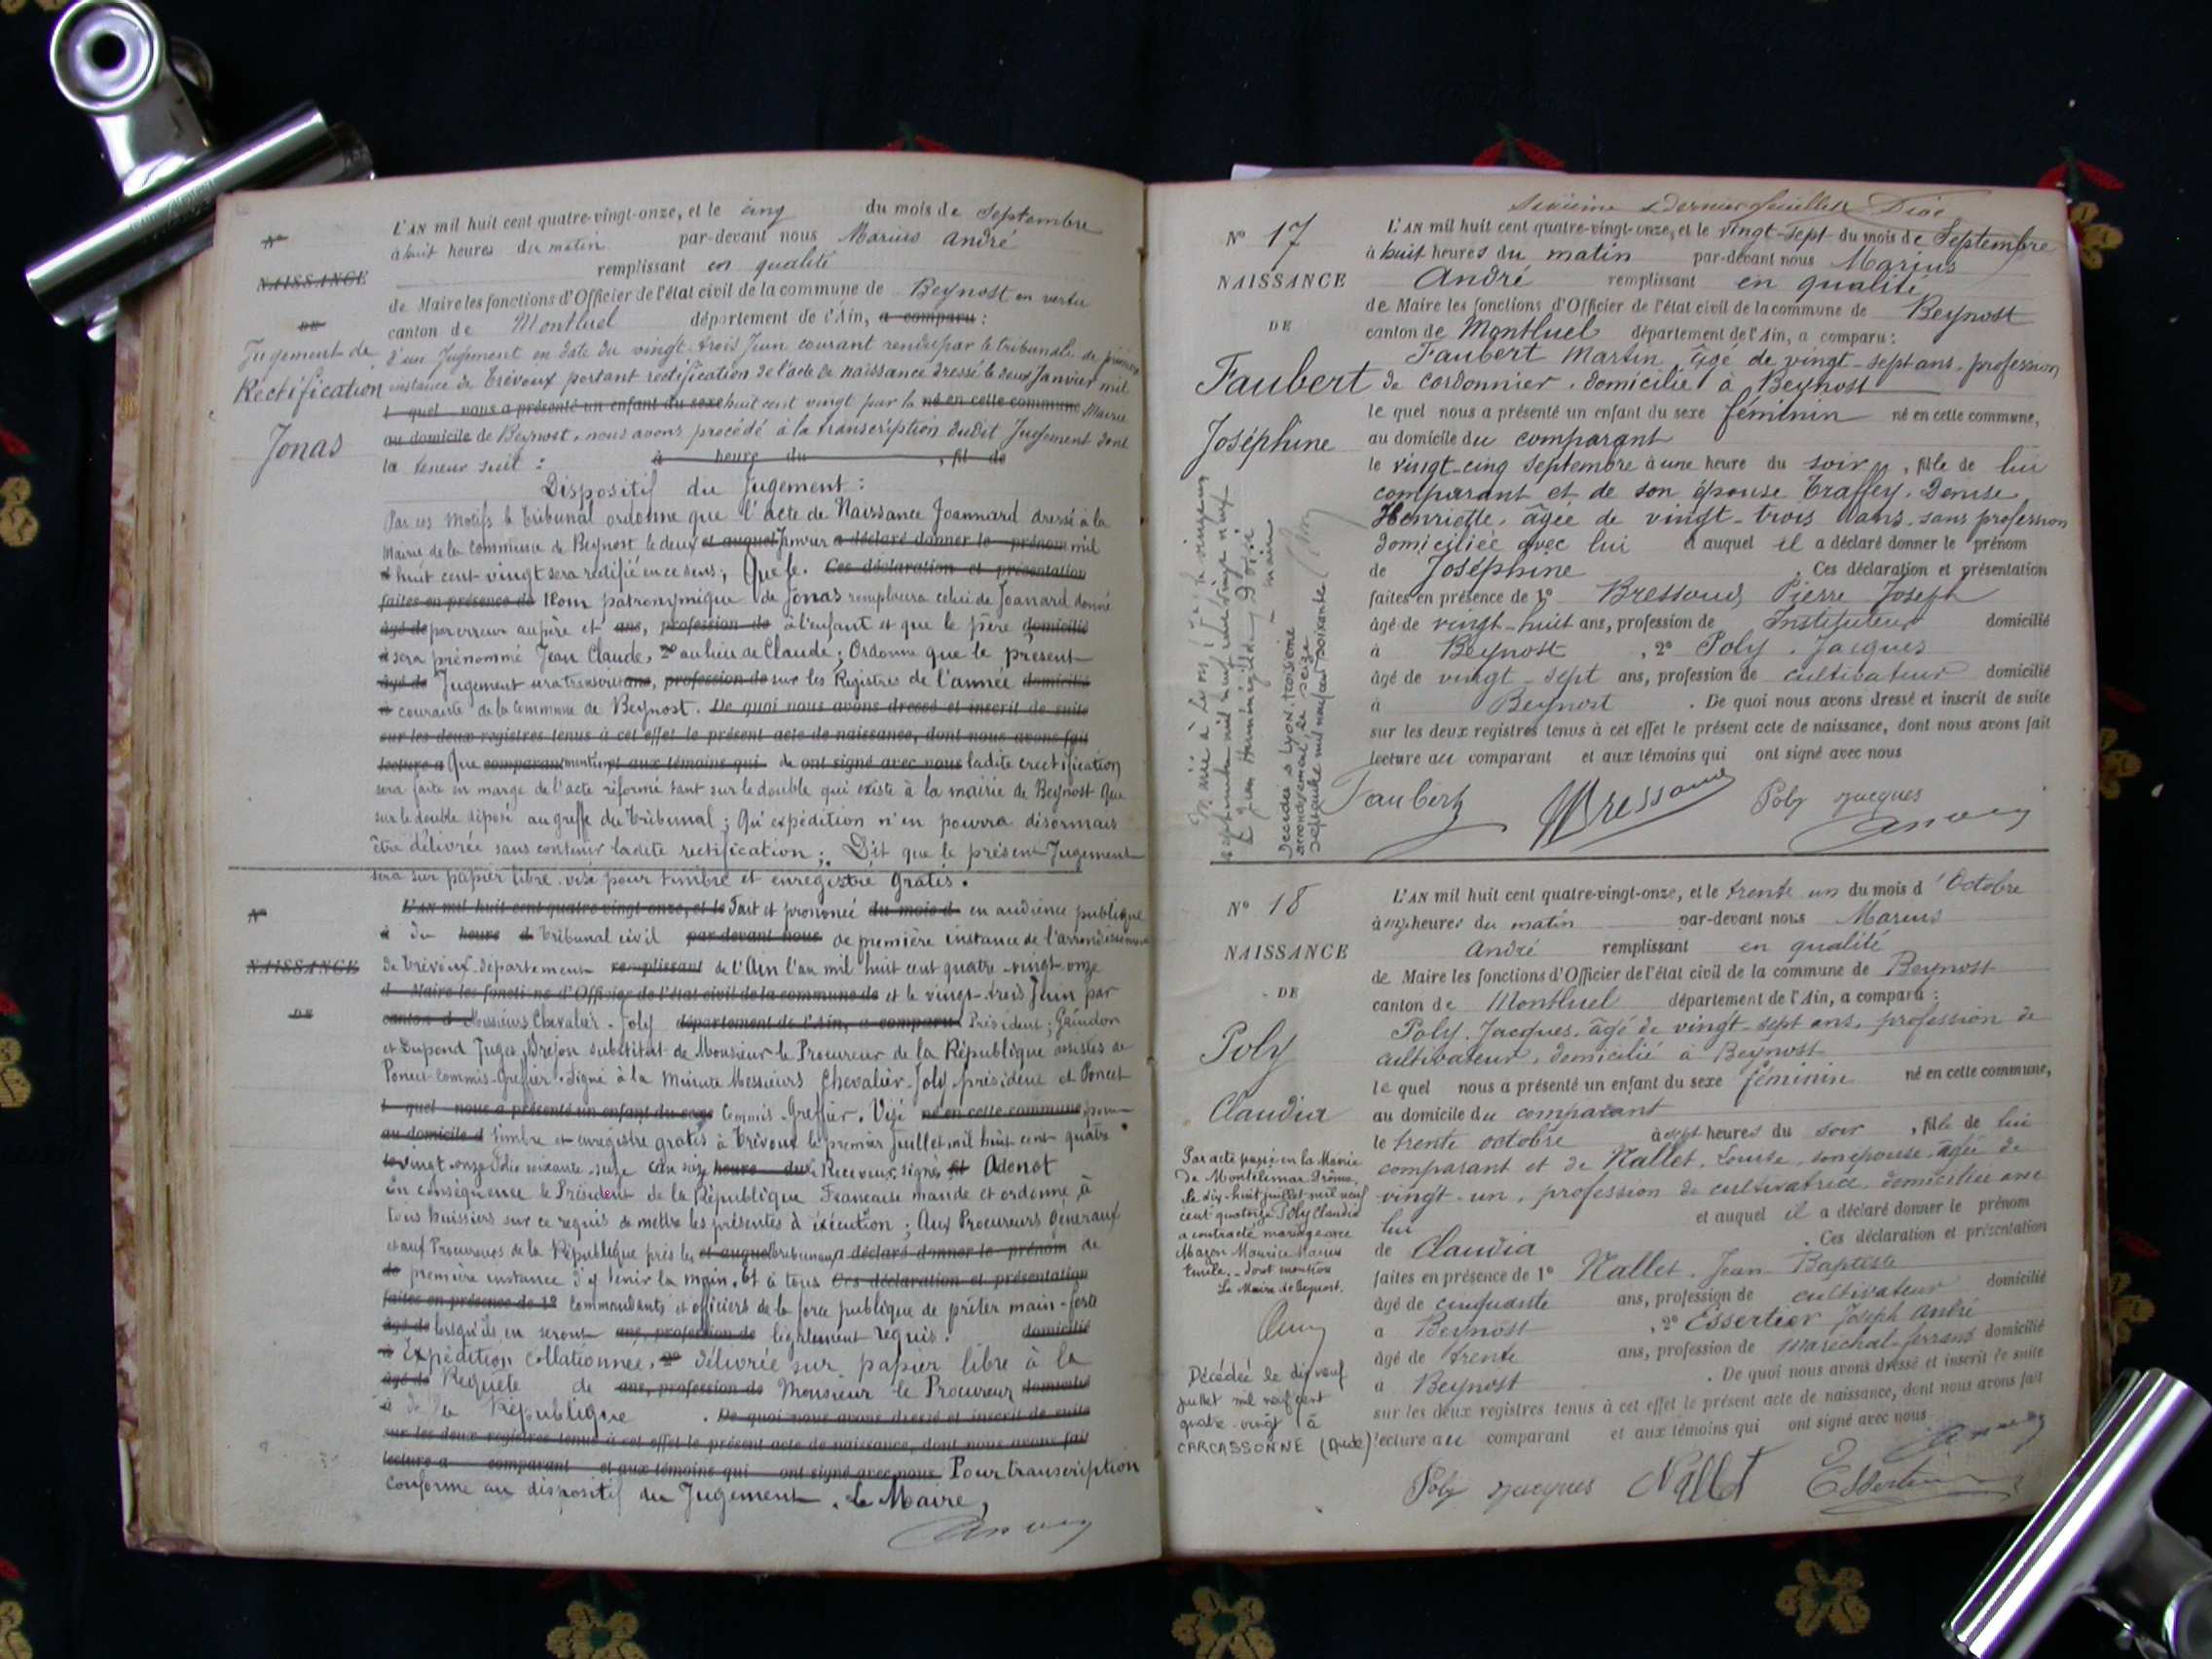 L'AN mil huit cent quatre-vingt-onze, et le cinq du mois de Septembre
à huit heures du matin par-devant nous Marius André
remplissant en qualité
de Maire les fonctions d'Officier de l'état civil de la commune de Beynost en vertu
canton de Montluel département de l'Ain, a comparu :
N°
NAISSANCE
DE
Jugement de
Rectification
Jonas
d'un Jugement en date du vingt-trois Juin courant rendu par le tribunal de première
instance de Trévoux portant rectification de l'acte de naissance dressé le deux Janvier mil
l quel nous a présenté un enfant du sexe huit cent vingt par la né en cette commune Mairie
au domicile de Beynost, nous avons procédé à la transcription dudit Jugement dont
la teneur suit : à heure du , fil de
Dispositif du Jugement :
Par ces motifs le Tribunal ordonne que l'acte de Naissance Joannard dressé à la
Mairie de la commune de Beynost le deux et auquel Janvier a déclaré donner le prénom mil
huit cent vingt sera rectifié en ce sens ; Que le Ces déclaration et présentation
faites en présence de Nom patronymique de Jonas remplacera celui de Joanard donné
âgé de par erreur au père et ans, profession de à l'enfant et que le père domicilié
à sera prénommé Jean Claude, 2° au lieu de Claude ; Ordonne que le présent
âgé de Jugement sera transcrit ans, profession de sur les Registres de l'année domicilié
à courante de la Commune de Beynost. De quoi nous avons dressé et inscrit de suite
sur les deux registres tenus à cet effet le présent acte de naissance, dont nous avons fait
lecture a Que comparant mention et aux témoins qui de ont signé avec nous ladite rectification
sera faite en marge de l'acte réformé tant sur le double qui existe à la mairie de Beynost que
sur le double déposé au greffe du Tribunal ; Qu'expédition n'en pourra désormais
être délivrée sans contenir ladite rectification ; Dit que le présent Jugement
sera sur papier libre visé pour timbre et enregistré gratis.
N°
NAISSANCE
DE
L'AN mil huit cent quatre-vingt-onze, et le Fait et prononcé du mois d en audience publique
à du heure d Tribunal civil par-devant nous de première instance de l'arrondissement
de Trévoux département remplissant de l'Ain l'an mil huit cent quatre-vingt-onze
d Maire les fonctions d'Officier de l'état civil de la commune de et le vingt-trois Juin par
canton d Messieurs Chevalier-Joly département de l'Ain, a comparu Président ; Gaindon
et Dupond Juges, Brejon substitut de Monsieur le Procureur de la République assistés de
Poncet Commis-Greffier. Signé à la Minute Messieurs Chevalier-Joly président et Poncet
l quel nous a présenté un enfant du sexe Commis-Greffier. Visé né en cette commune, pour
au domicile d timbre et enregistré gratis à Trévoux le premier Juillet mil huit cent quatre
le vingt-onze folio soixante-seize case seize heure du Receveur signé fil Adenot
En conséquence le Président de la République Française mande et ordonne à
tous huissiers sur ce requis de mettre les présentes à exécution ; Aux Procureurs Généraux
et aux Procureurs de la République près les et auquel tribunaux a déclaré donner le prénom de
de première instance d'y tenir la main. Et à tous Ces déclaration et présentation
faites en présence de 1° Commandants et officiers de la force publique de prêter main-forte
âgé de lorsqu'ils en seront ans, profession de légalement requis. domicilié
à Expédition collationnée, 2° délivrée sur papier libre à la
âgé de Requête de ans, profession de Monsieur le Procureur domicilié
à de la République . De quoi nous avons dressé et inscrit de suite
sur les deux registres tenus à cet effet le présent acte de naissance, dont nous avons fait
lecture a comparant et aux témoins qui ont signé avec nous Pour transcription
conforme au dispositif du Jugement. Le Maire,
N° 17
NAISSANCE
DE
Faubert
Joséphine
L'AN mil huit cent quatre-vingt-onze, et le vingt-sept du mois de Septembre
à huit heures du matin par-devant nous Marius
André remplissant en qualité
de Maire les fonctions d'Officier de l'état civil de la commune de Beynost
canton de Montluel département de l'Ain, a comparu :
Faubert Martin, âgé de vingt-sept ans, profession
de cordonnier, domicilié à Beynost
le quel nous a présenté un enfant du sexe féminin né en cette commune,
au domicile du comparant
le vingt-cinq Septembre à une heure du soir, fille de lui
comparant et de son épouse Traffey, Denise
Henriette, âgée de vingt-trois ans, sans profession
domiciliée avec lui et auquel il a déclaré donner le prénom
de Joséphine . Ces déclaration et présentation
faites en présence de 1° Bressoud Pierre Joseph
âgé de vingt-huit ans, profession de Instituteur domicilié
à Beynost , 2° Poly, Jacques
âgé de vingt-sept ans, profession de cultivateur domicilié
à Beynost . De quoi nous avons dressé et inscrit de suite
sur les deux registres tenus à cet effet le présent acte de naissance, dont nous avons fait
lecture au comparant et aux témoins qui ont signé avec nous
Décédée à Lyon, troisième
arrondissement, le seize
Septembre mil neuf cent soixante
Faubert Bressoud Poly Jacques
N° 18
NAISSANCE
DE
Poly
Claudia
L'AN mil huit cent quatre-vingt-onze, et le trente un du mois d'Octobre
à onze heures du matin par-devant nous Marius
André remplissant en qualité
de Maire les fonctions d'Officier de l'état civil de la commune de Beynost
canton de Montluel département de l'Ain, a comparu :
Poly, Jacques, âgé de vingt-sept ans, profession de
cultivateur, domicilié à Beynost
le quel nous a présenté un enfant du sexe féminin né en cette commune,
au domicile du comparant
le trente octobre à sept heures du soir, fille de lui
comparant et de Nallet, Louise, son épouse, âgée de
vingt-un, profession de cultivatrice, domiciliée avec
lui et auquel il a déclaré donner le prénom
de Claudia . Ces déclaration et présentation
faites en présence de 1° Nallet, Jean-Baptiste
âgé de cinquante ans, profession de cultivateur domicilié
à Beynost , 2° Essertier Joseph André
âgé de trente ans, profession de Maréchal-ferrant domicilié
à Beynost . De quoi nous avons dressé et inscrit de suite
sur les deux registres tenus à cet effet le présent acte de naissance, dont nous avons fait
lecture au comparant et aux témoins qui ont signé avec nous
Par acte passé en la Mairie
de Montélimar Drôme,
le dix-huit juillet mil neuf
cent quatorze Poly Claudia
a contracté mariage avec
Mazon Maurice Marius
Emile. - Dont mention
Le Maire de Beynost.
Décédée le dix neuf
juillet mil neuf cent
quatre-vingt à
CARCASSONNE (Aude)
Poly Jacques Nallet Essertier